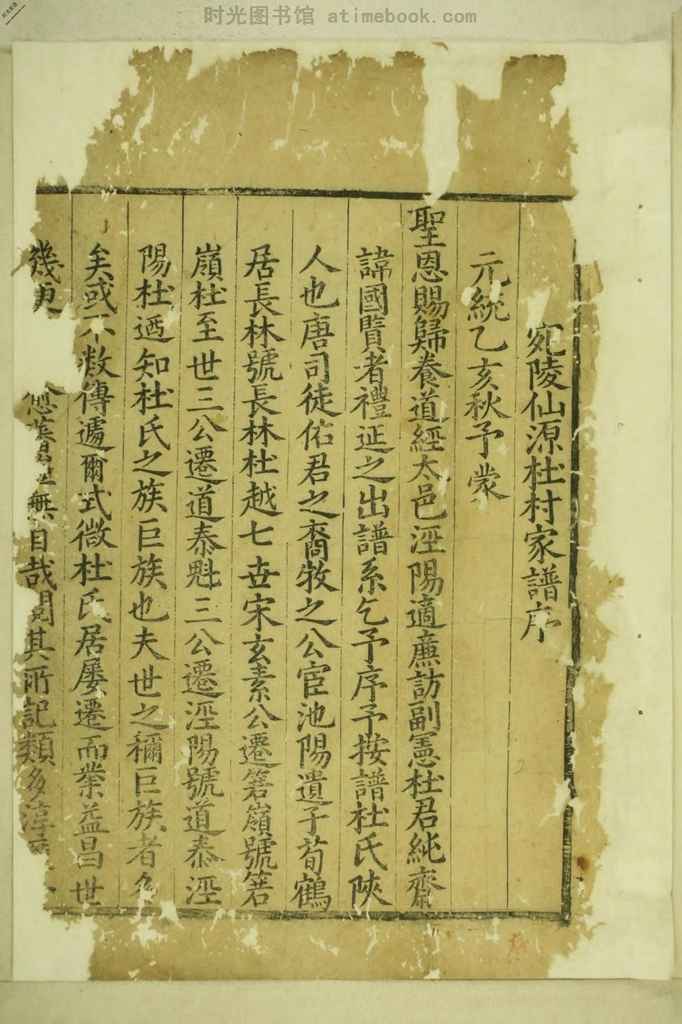 时光图书馆 atimebook.com
宛陵仙源杜村家譜序
元統乙亥秋予蒙
聖恩賜歸養道經太邑涇陽適廉訪副憲杜君純齋
諱國賢者禮延之出譜系乞予序予按譜杜氏陜
人也唐司徒佑君之裔牧之公宦池陽遺子荀鶴
居長林號長林杜越七世宋玄素公遷箬嶺號箬
嶺杜至世三公遷道泰魁三公遷涇陽號道泰涇
陽杜迺知杜氏之族巨族也夫世之稱巨族者多
矣或不數傳遽爾式微杜氏居屢遷而業益昌世
幾更 無自哉閱其所記類多淳